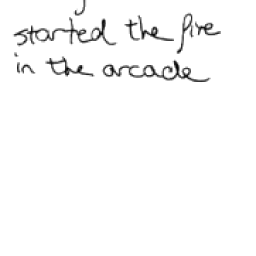 started the fire
in the arcade